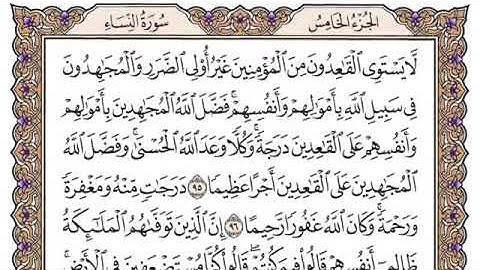 الجزء الخامس
سورة النساء
لَّا يَسْتَوِى ٱلْقَٰعِدُونَ مِنَ ٱلْمُؤْمِنِينَ غَيْرُ أُو۟لِى ٱلضَّرَرِ وَٱلْمُجَٰهِدُونَ
فِى سَبِيلِ ٱللَّهِ بِأَمْوَٰلِهِمْ وَأَنفُسِهِمْ ۚ فَضَّلَ ٱللَّهُ ٱلْمُجَٰهِدِينَ بِأَمْوَٰلِهِمْ
وَأَنفُسِهِمْ عَلَى ٱلْقَٰعِدِينَ دَرَجَةً ۚ وَكُلًّا وَعَدَ ٱللَّهُ ٱلْحُسْنَىٰ ۚ وَفَضَّلَ ٱللَّهُ
ٱلْمُجَٰهِدِينَ عَلَى ٱلْقَٰعِدِينَ أَجْرًا عَظِيمًا ٩٥ دَرَجَٰتٍ مِّنْهُ وَمَغْفِرَةً
وَرَحْمَةً ۚ وَكَانَ ٱللَّهُ غَفُورًا رَّحِيمًا ٩٦ إِنَّ ٱلَّذِينَ تَوَفَّىٰهُمُ ٱلْمَلَٰٓئِكَةُ
ظَالِمِىٓ أَنفُسِهِمْ قَالُوا۟ فِيمَ كُنتُمْ ۖ قَالُوا۟ كُنَّا مُسْتَضْعَفِينَ فِى ٱلْأَرْضِ ۚ